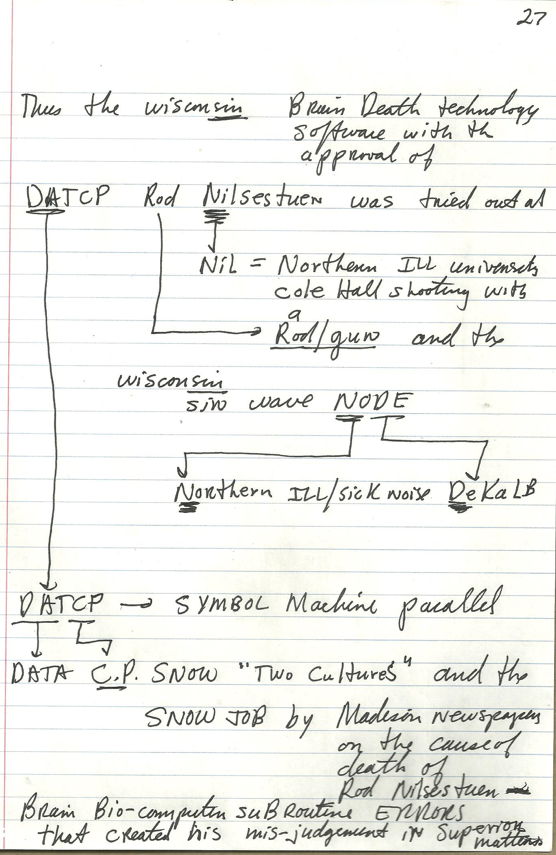 27
Thus the wisconsin Brain Death technology
software with th
approval of
DATCP Rod Nilsestuen was tried out at
NiL = Northern ILL university
cole Hall shooting with
a
Rod/gun and the
wisconsin
sin wave NODE
Northern ILL/sick noise DeKaLB
DATCP → SYMBOL Machine parallel
DATA C.P. SNOW "Two Cultures" and the
SNOW JOB by Madison newspapers
on the cause of
death of
Rod Nilsestuen
Brain Bio-computer suBRoutine ERRORS
that created his mis-judgement in Superior
matters